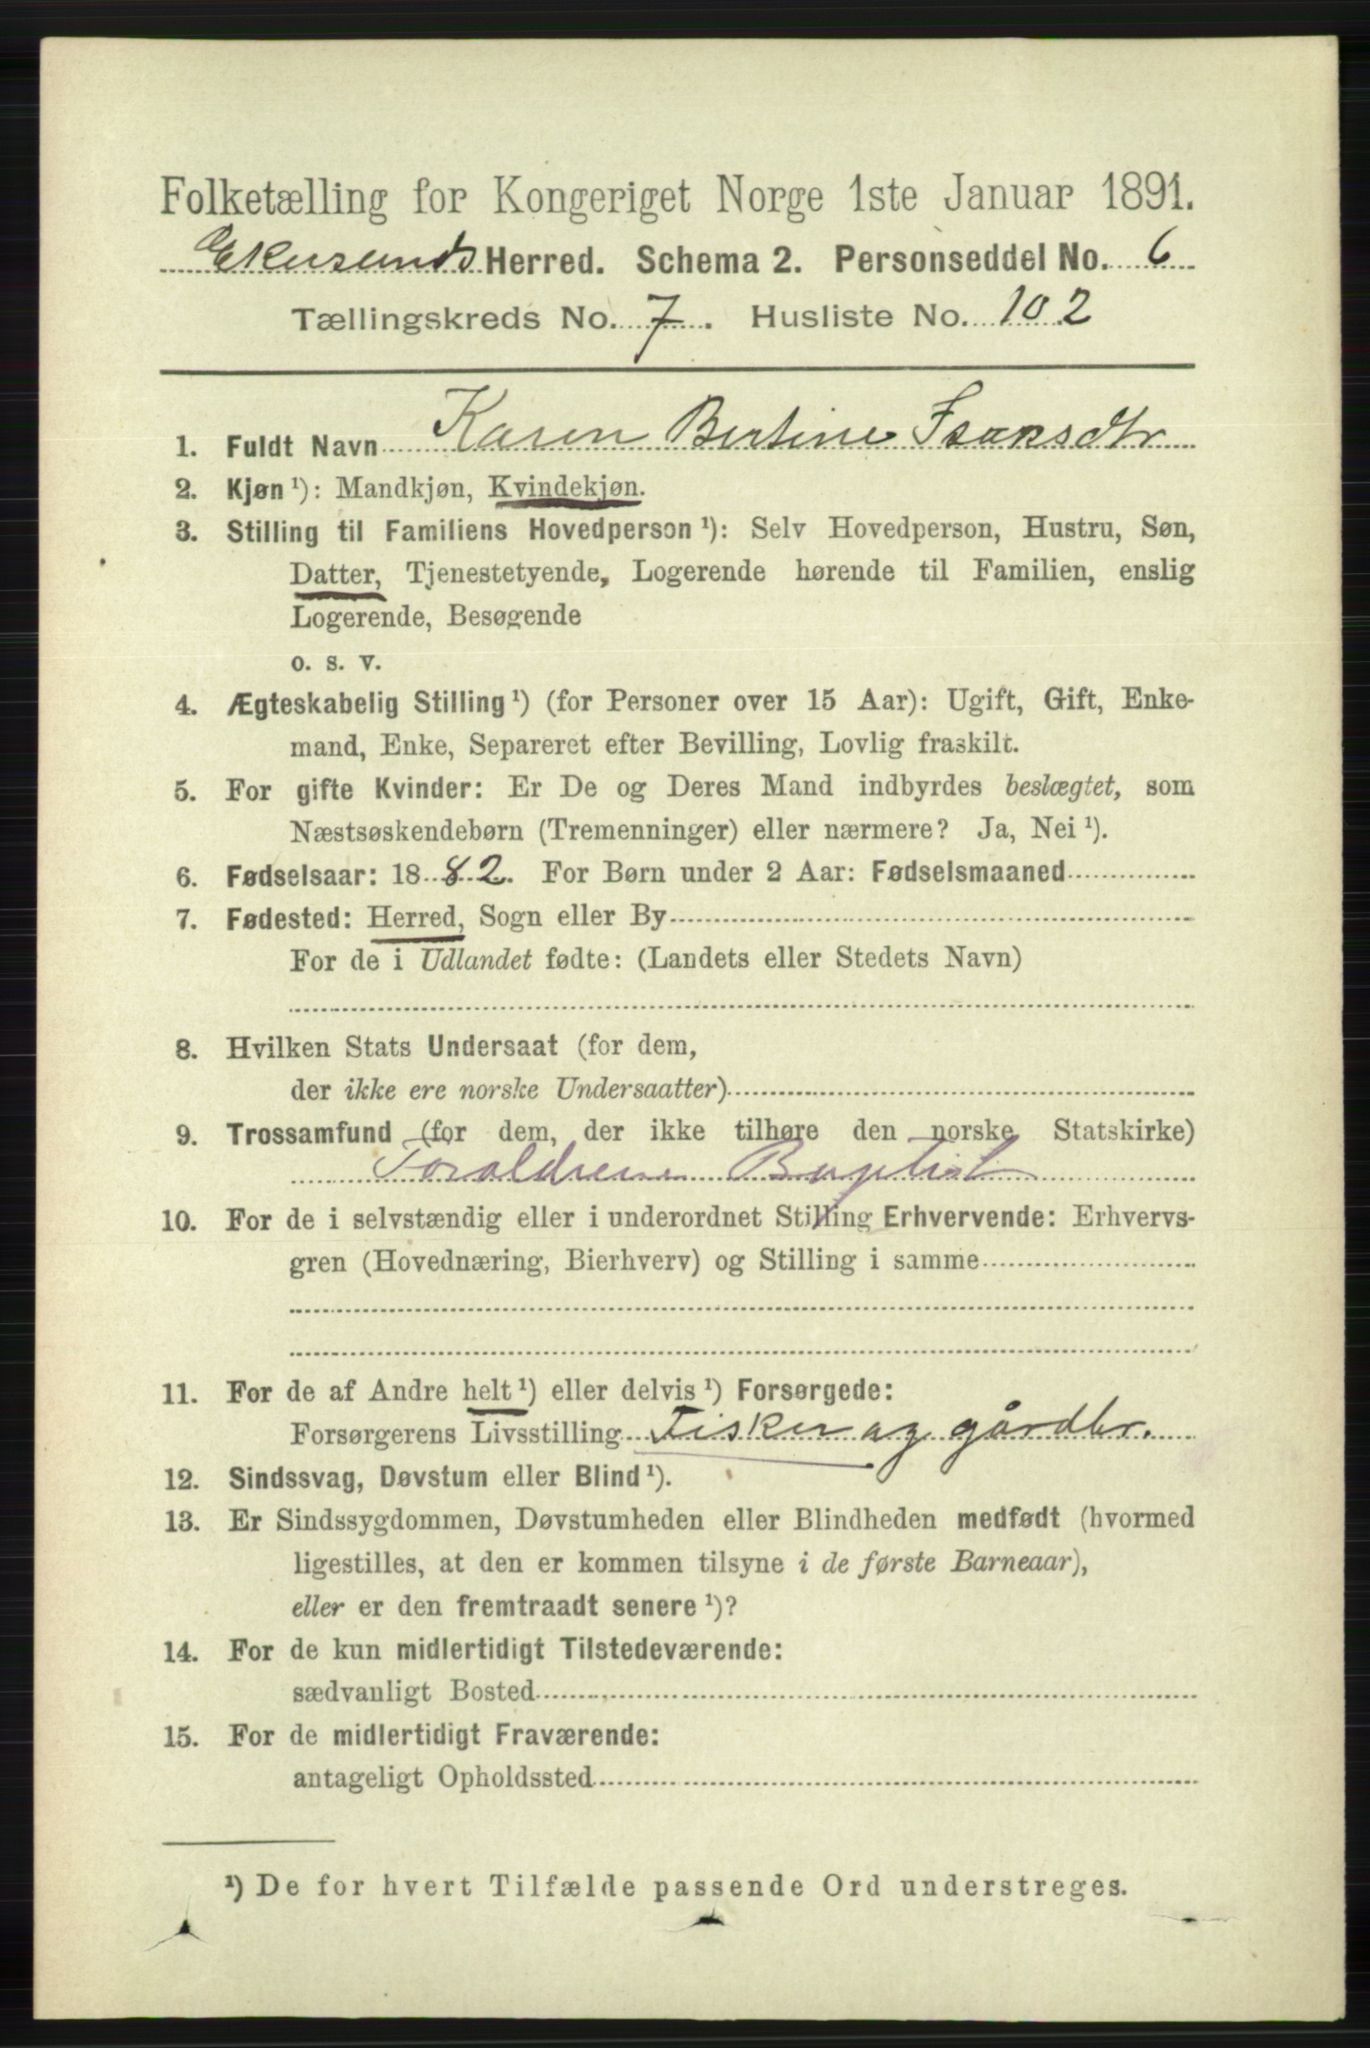 Folketælling for Kongeriget Norge 1ste Januar 1891.
Ekersunds Herred. Schema 2. Personseddel No. 6
Tællingskreds No. 7. Husliste No. 102
1. Fuldt Navn Karen Bertine Isaksdtr
2. Kjøn ¹): Mandkjøn, Kvindekjøn.
3. Stilling til Familiens Hovedperson ¹): Selv Hovedperson, Hustru, Søn,
Datter, Tjenestetyende, Logerende hørende til Familien, enslig
Logerende, Besøgende
o. s. v.
4. Ægteskabelig Stilling ¹) (for Personer over 15 Aar): Ugift, Gift, Enke-
mand, Enke, Separeret efter Bevilling, Lovlig fraskilt.
5. For gifte Kvinder: Er De og Deres Mand indbyrdes beslægtet, som
Næstsøskendebørn (Tremenninger) eller nærmere? Ja, Nei ¹).
6. Fødselsaar: 1882. For Børn under 2 Aar: Fødselsmaaned
7. Fødested: Herred, Sogn eller By
For de i Udlandet fødte: (Landets eller Stedets Navn)
8. Hvilken Stats Undersaat (for dem,
der ikke ere norske Undersaatter)
9. Trossamfund (for dem, der ikke tilhøre den norske Statskirke)
Foraldrene Baptist
10. For de i selvstændig eller i underordnet Stilling Erhvervende: Erhvervs-
gren (Hovednæring, Bierhverv) og Stilling i samme
11. For de af Andre helt ¹) eller delvis ¹) Forsørgede:
Forsørgerens Livsstilling Fisker og gårdbr.
12. Sindssvag, Døvstum eller Blind ¹).
13. Er Sindssygdommen, Døvstumheden eller Blindheden medfødt (hvormed
ligestilles, at den er kommen tilsyne i de første Barneaar),
eller er den fremtraadt senere ¹)?
14. For de kun midlertidigt Tilstedeværende:
sædvanligt Bosted
15. For de midlertidigt Fraværende:
antageligt Opholdssted
¹) De for hvert Tilfælde passende Ord understreges.